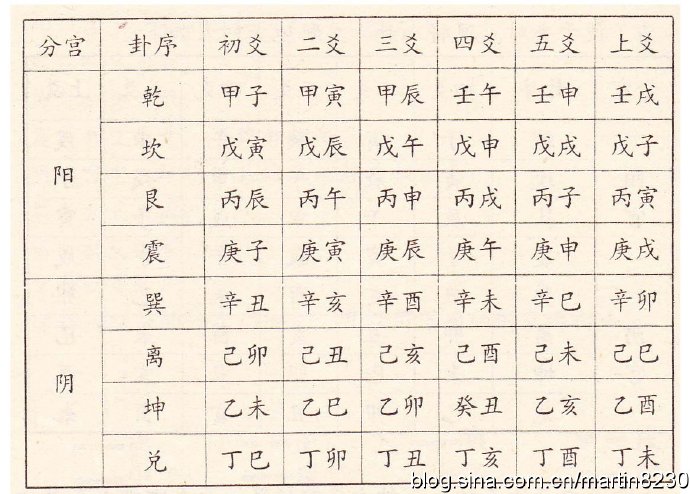 分宫 卦序 初爻 二爻 三爻 四爻 五爻 上爻
阳
乾 甲子 甲寅 甲辰 壬午 壬申 壬戌
坎 戊寅 戊辰 戊午 戊申 戊戌 戊子
艮 丙辰 丙午 丙申 丙戌 丙子 丙寅
震 庚子 庚寅 庚辰 庚午 庚申 庚戌
阴
巽 辛丑 辛亥 辛酉 辛未 辛巳 辛卯
离 己卯 己丑 己亥 己酉 己未 己巳
坤 乙未 乙巳 乙卯 癸丑 乙亥 乙酉
兑 丁巳 丁卯 丁丑 丁亥 丁酉 丁未
blog.sina.com.cn/martin8230